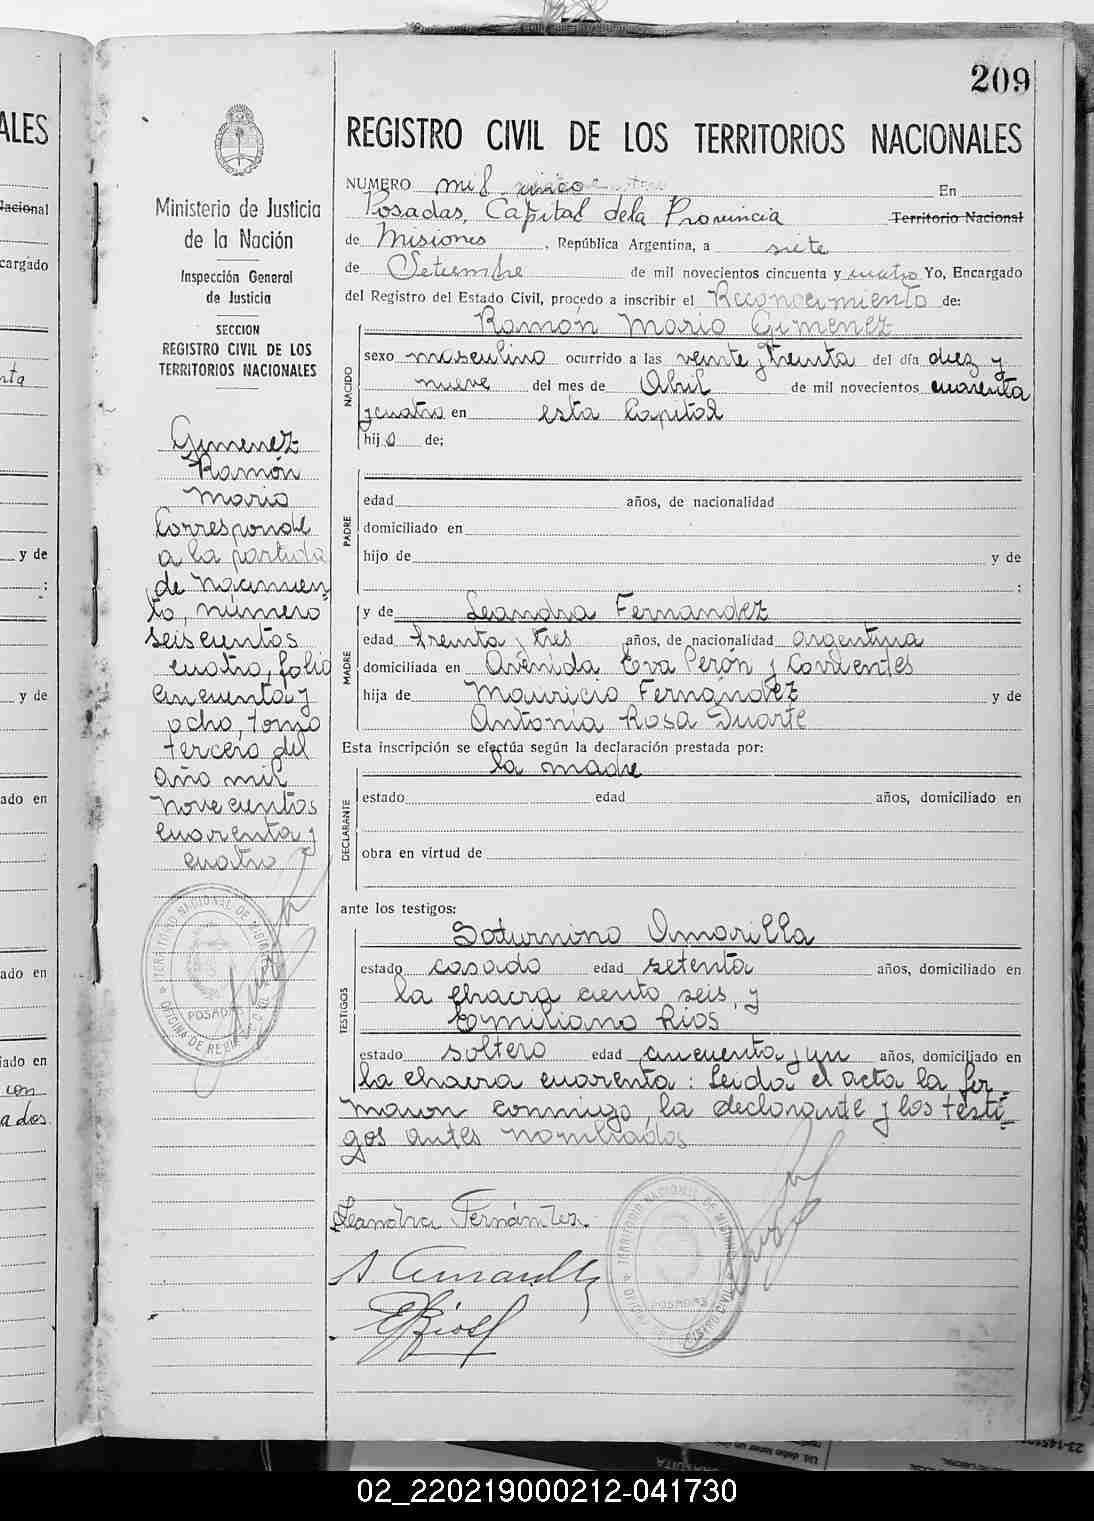 209
ALES
REGISTRO CIVIL DE LOS TERRITORIOS NACIONALES
NUMERO mil cinco En
Posadas, Capital de la Provincia Territorio Nacional
de Misiones, República Argentina, a siete
de Setiembre de mil novecientos cincuenta y cuatro Yo, Encargado
del Registro del Estado Civil, procedo a inscribir el Reconocimiento de:
Ramón Mario Gimenez
NACIDO
sexo masculino ocurrido a las veinte y treinta del día diez y
nueve del mes de Abril de mil novecientos cuarenta
y cuatro en esta Capital
hijo de;
PADRE
edad años, de nacionalidad
domiciliado en
hijo de y de
;
MADRE
y de Leandra Fernandez
edad treinta y tres años, de nacionalidad argentina
domiciliada en Avenida Eva Perón y Corrientes
hija de Mauricio Fernández y de
Antonia Rosa Duarte
Esta inscripción se efectúa según la declaración prestada por:
la madre
DECLARANTE
estado edad años, domiciliado en
obra en virtud de
ante los testigos:
TESTIGOS
Saturnino Amarilla
estado casado edad setenta años, domiciliado en
la chacra ciento seis, y
Emiliano Rios
estado soltero edad cincuenta y un años, domiciliado en
la chacra cuarenta: Leida el acta la fir-
maron conmigo, la declarante y los testi-
gos antes nombrados
Leandra Fernández.
S Amarilla
E Rios
Ministerio de Justicia
de la Nación
Inspección General
de Justicia
SECCION
REGISTRO CIVIL DE LOS
TERRITORIOS NACIONALES
Gimenez
Ramón
Mario
Corresponde
a la partida
de nacimien-
to, número
seiscientos
cuatro, folio
cincuenta y
ocho, tomo
tercero del
año mil
novecientos
cuarenta y
cuatro
TERRITORIO NACIONAL DE MISIONES
OFICINA DE REGISTRO CIVIL
POSADAS
TERRITORIO NACIONAL DE MISIONES
POSADAS
Nacional
cargado
y de
;
y de
ado en
ado en
iado en
con
ados
02_220219000212-041730